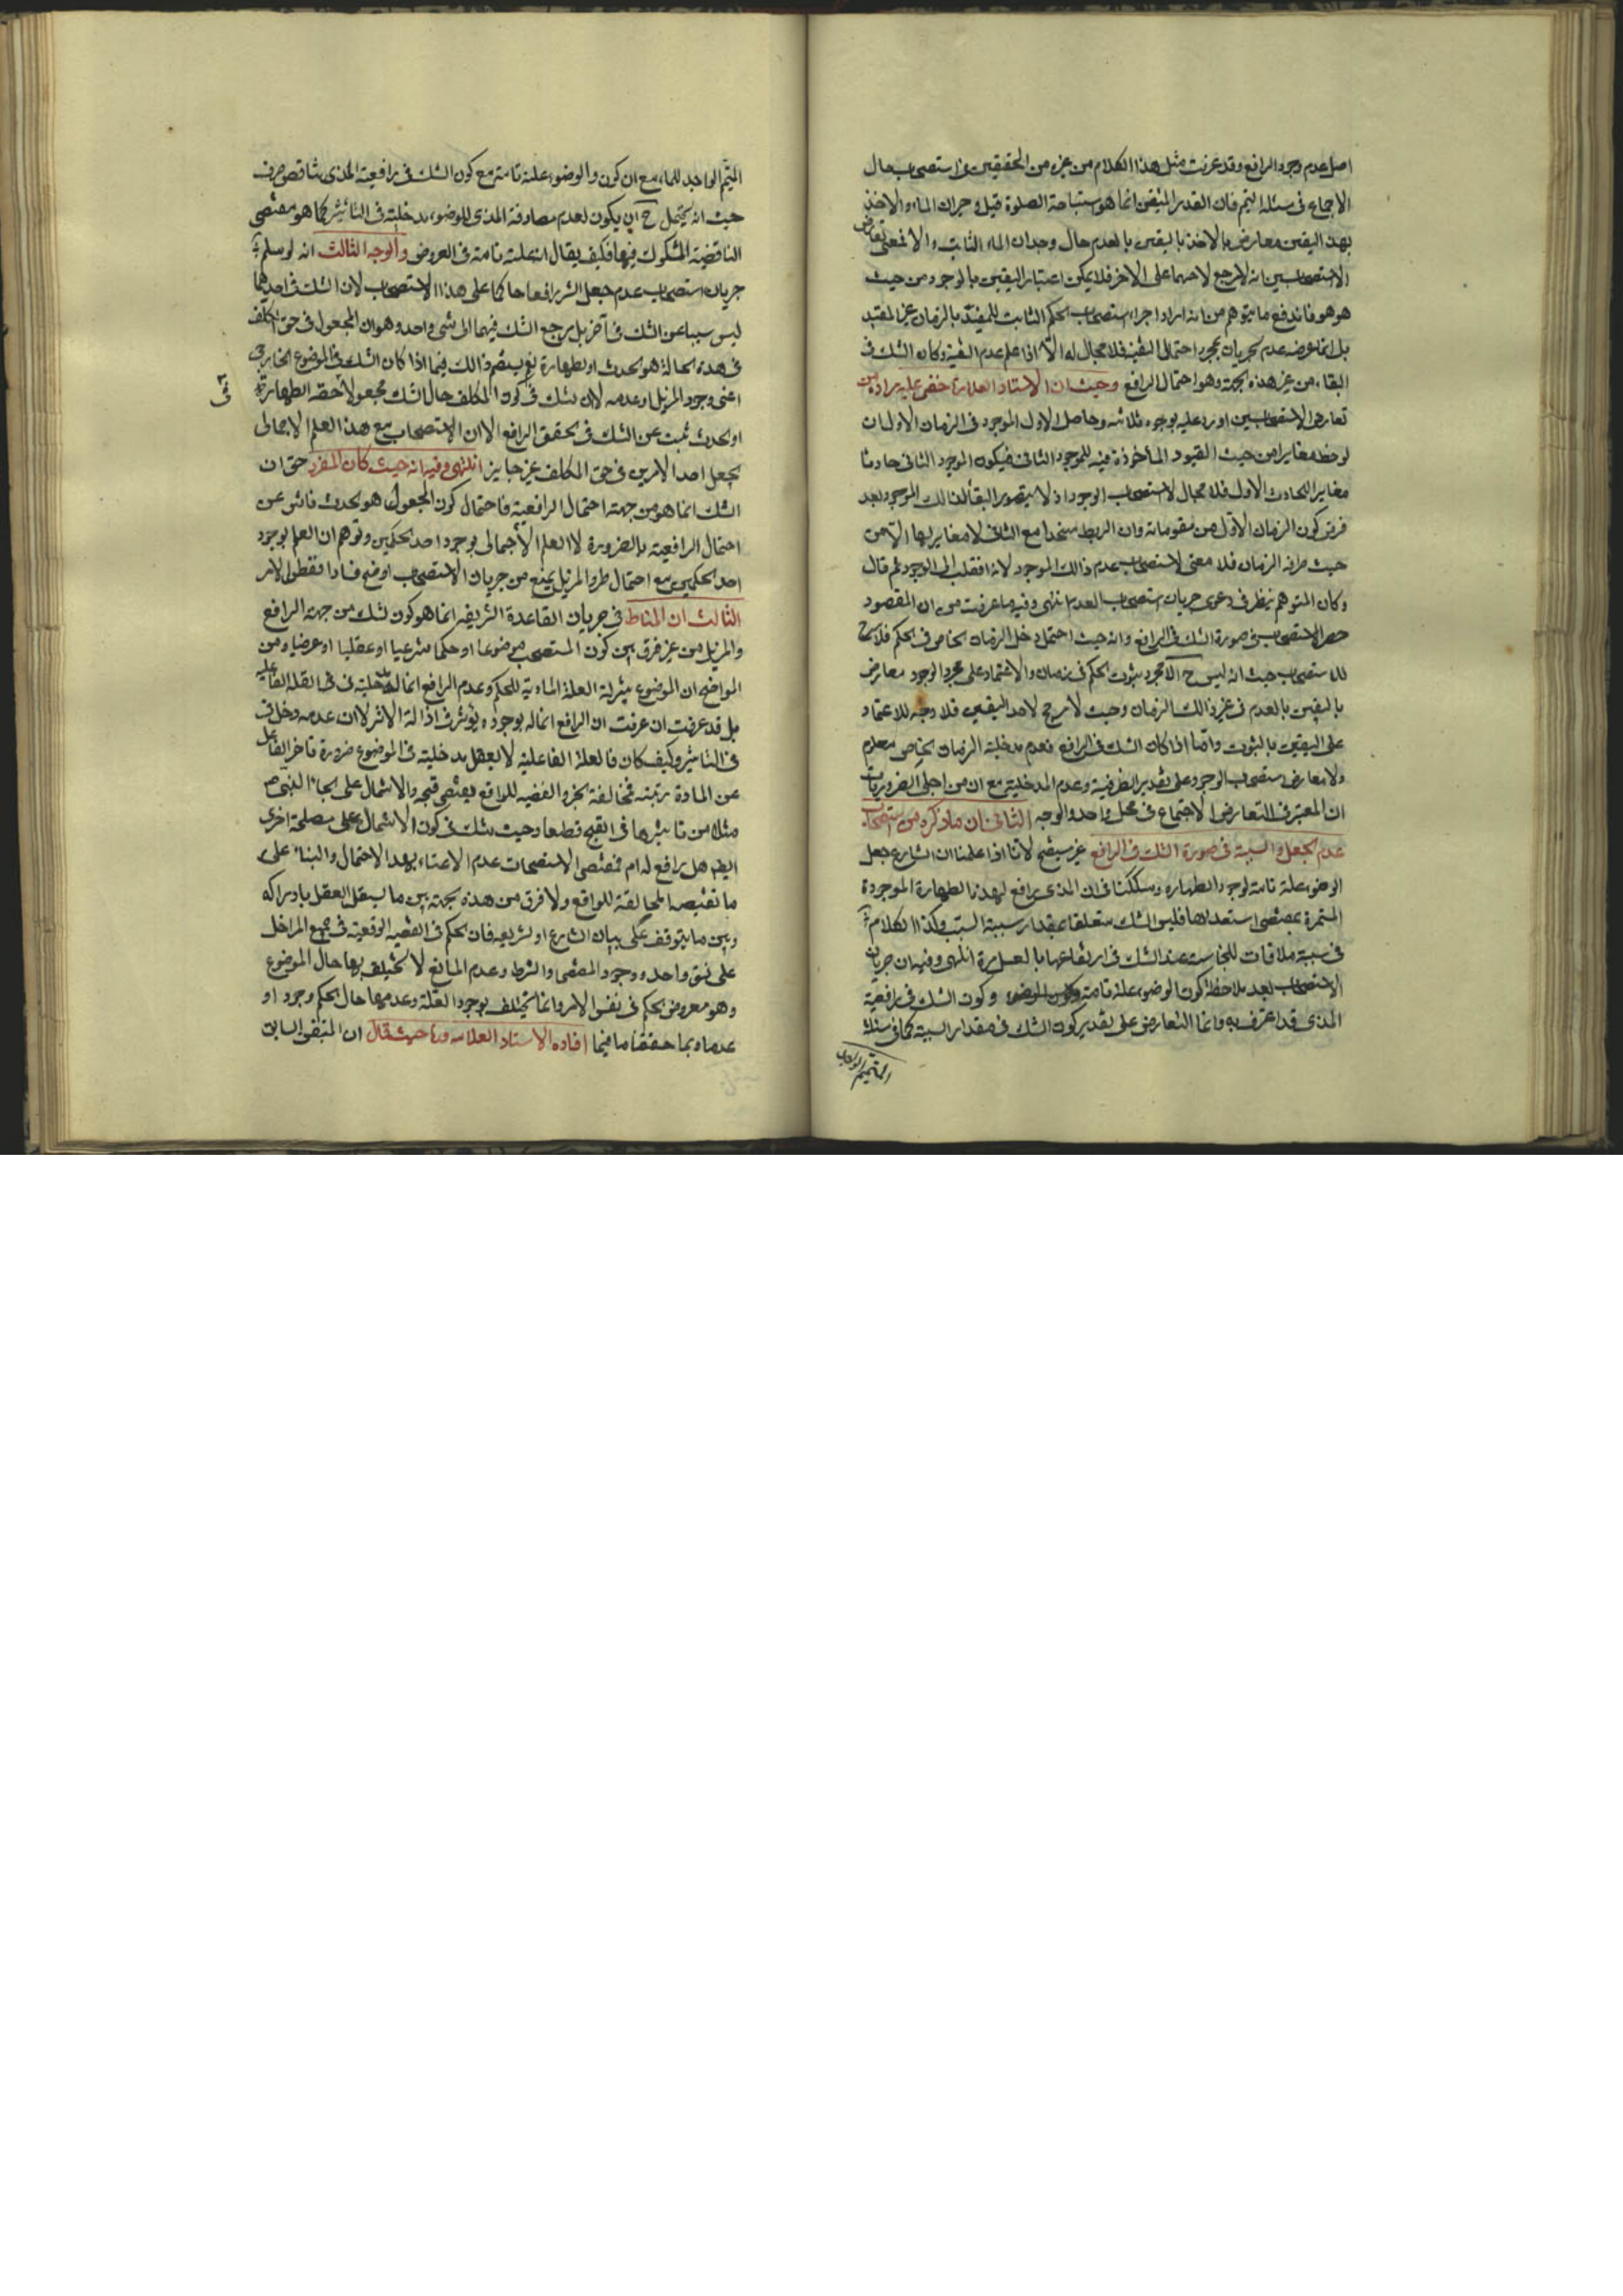 اصل عدم وجود الرافع وقد عرفت مثل هذا الكلام من غيره من المحققين فى استصحاب حال
الاجماع فى مسئلة التيمم فان القدر المتيقن انما هو استباحة الصلوة قبل وجدان الماء والاخذ
بهذا اليقين معارض بالاخذ باليقين بالعدم حال وجدان الماء الثابت والا لمعنى تعارض
الاستصحابين انه لا مرجح لاحدهما على الاخر فلا يمكن اعتبار اليقين بالوجود من حيث
هو هو فاندفع ما يتوهم من انه اراد اجراء استصحاب الحكم الثابت للمقيد بالزمان غير المقيد
بل انما غرضه عدم الجريان بمجرد احتمال التقييد فلا مجال له الا اذا علم عدم التقييد وكان الشك فى
البقاء من غير هذه الجهة وهو احتمال الرافع وحيث ان الاستاد العلامة خفى عليه مراده من
تعارض الاستصحابين اورد عليه بوجوه ثلاثه وحاصل الاول الموجود فى الزمان الاول ان
لوحظ مغايرا من حيث القيود المأخوذة فيه للموجود الثانى فيكون الموجود الثانى حادثا
مغايرا للحادث الاول فلا مجال لاستصحاب الوجود اذ لا يتصور البقاء لذلك الموجود بعد
فرض كون الزمان الاول من مقوماته وان لوحظ متحدا مع الثانى لا مغاير لها الا من
حيث ظرفه الزمان فلا معنى لاستصحاب عدم ذالك الموجود لانه انقلب الى الوجود ثم قال
وكان المتوهم ينظر فى دعوى جريان استصحاب العدم انتهى وفيه ما عرفت من ان المقصود
حصر الاستصحاب فى صورة الشك فى الرافع وانه حيث احتمل دخل الزمان الخاص فى الحكم فلا مسرح
للاستصحاب حيث انه ليس ح الا مجرد ثبوت الحكم فى زمان والاعتماد على مجرد الوجود معارض
باليقين بالعدم فى غير ذالك الزمان وحيث لا مرجح لاحد اليقينين فلا وجه للاعتماد
على اليقين بالثبوت واما اذا كان الشك فى الرافع فعدم مدخلية الزمان الخاص معلوم
ولا معارض استصحاب الوجود على تقدير الظرفية وعدم المدخلية مع ان من اجلى الضروريات
ان المعتبر فى التعارض الاجتماع فى محل واحد والوجه الثانى ان ما ذكره من استصحاب
عدم الجعل والسببية فى صورة الشك فى الرافع غير مستقيم لانا اذا علمنا ان الشارع جعل
الوضوء علة تامة لوجود الطهارة وشككنا فى ان المذى رافع لهذه الطهارة الموجودة
المستمرة بمقتضى استعدادها فليس الشك متعلقا بمقدار سببية السبب وكذا الكلام
فى سببية ملاقات للنجاسة عند الشك فى ارتفاعها بالغسل مرة انتهى وفيه ان جريان
الاستصحاب بعد ملاحظة كون الوضوء علة تامة وكون الشك فى رافعية
المذى قد اعترف به وانما التعارض على تقدير كون الشك فى مقدار السببية كما فى مسئلة
المتيمم الواجد
المتيمم الواجد للماء مع ان كون والوضوء علة تامة مع كون الشك فى رافعية المذى تناقض صرف
حيث انه يحتمل ح ان يكون لعدم مصادفة المذى للوضوء مدخلية فى التأثير كما هو مقتضى
الناقضية المشكوك فيها فكيف يقال انه علة تامة فى العروض والوجه الثالث انه لو سلم
جريان استصحاب عدم جعل الشىء رافعا حاكما على هذا الاستصحاب لان الشك فى احدهما
ليس سببا عن الشك فى آخر بل مرجع الشك فيهما الى شىء واحد وهو ان المجعول فى حق المكلف
فى هذه الحالة هو الحدث او الطهارة نعم يستقيم ذالك فيما اذا كان الشك فى الموضوع الخارجى
اعنى وجود المزيل او عدمه لان الشك فى كون المكلف حال الشك مجعولا فى حقه الطهارة
او الحدث مسبب عن الشك فى تحقق الرافع الا ان الاستصحاب مع هذا العلم الاجمالى
بجعل احد الامرين فى حق المكلف غير جايز انتهى وفيه انه حيث كان المفروض ان
الشك انما هو من جهة احتمال الرافعية فاحتمال كون المجعول هو الحدث ناش عن
احتمال الرافعية بالضرورة لا العلم الاجمالى بوجود احد الحكمين وتوهم ان العلم بوجود
احد الحكمين مع احتمال طرو المزيل يمنع من جريان الاستصحاب اوضح فسادا
الثالث ان المناط فى جريان القاعدة الشريفة انما هو كون لشك من جهة الرافع
والمزيل من غير فرق بين كون المستصحب موضوعا او حكما شرعيا او عقليا او عرضيا ومن
الواضح ان الموضوع بمنزلة العلة المادية للحكم وعدم الرافع انما له مدخلية فى العلة الفاعلية
بل قد عرفت ان عرفت ان الرافع انما له بوجوده يؤثر فى اذالة الاثر لا ان عدمه دخل فى
فى التأثير وكيف كان فالعلة الفاعلية لا يعقل مدخليته فى الموضوع ضرورة تأخر الفاعل
عن المادة رتبته فمخالفة الجزء القضيه للواقع يقتضى قبحه والاشتمال على انجاء النبى ص
مثلا من تأثيرها فى القبح قطعا وحيث شك فى كون الاشتمال على مصلحة اخرى
ايضا هل رافع له ام فمقتضى الاستصحاب عدم الاعتناء بهذا الاحتمال والبناء على
ما تقتضيه المخالفة للواقع ولا فرق من هذه جهة بين ما يستقل العقل بادراكه
وبين ما يتوقف على بيان الشارع او الشريعة فان الحكم فى القضيه الواقعية فى جميع المراحل
على نسق واحد ووجود المقتضى والشرط وعدم المانع لا يختلف بها حال الموضوع
وهو معروض الحكم فى نفس الامر وانما يختلف بوجود العلة وعدمها حال الحكم وجودا و
عدما وبما حققنا ما فيما افاده الاستاد العلامه حيث قال ان المتيقن السابق